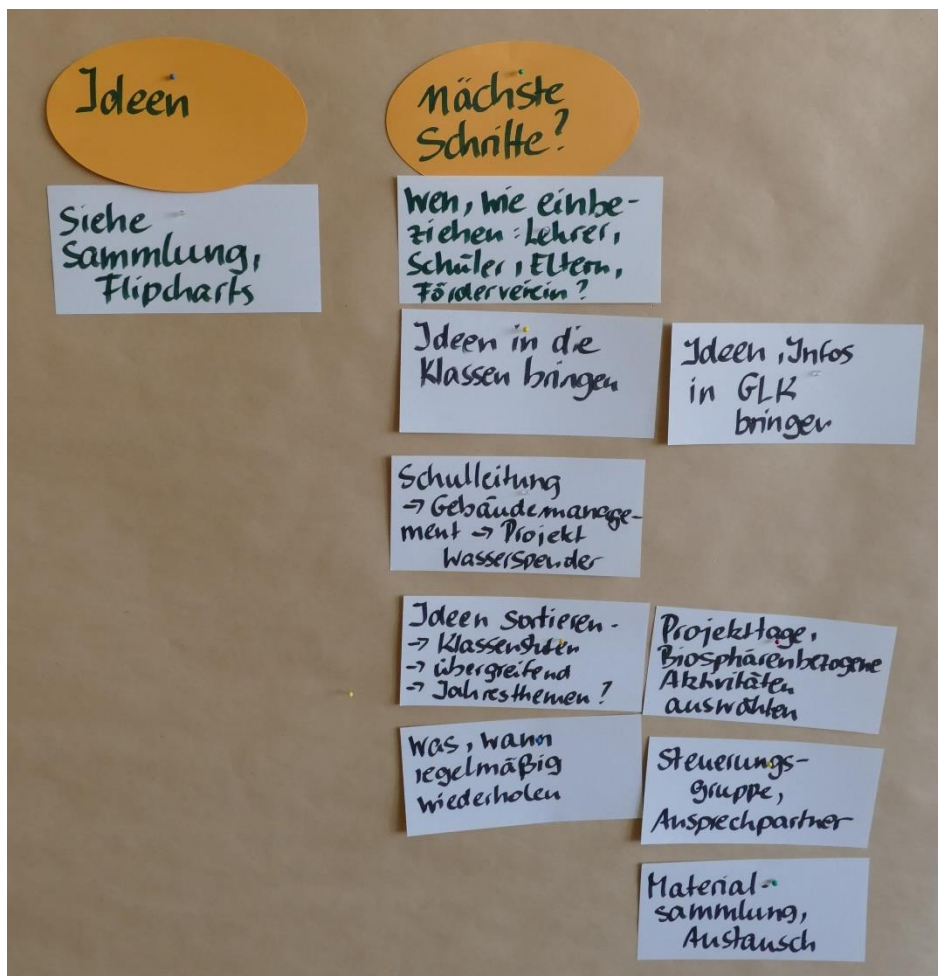 Ideen
Siehe
Sammlung,
Flipcharts
nächste
Schritte?
Wen, wie einbe-
ziehen: Lehrer,
Schüler, Eltern,
Förderverein?
Ideen in die
Klassen bringen
Ideen, Infos
in GLK
bringen
Schulleitung
→ Gebäudemanage-
ment → Projekt
Wasserspender
Ideen sortieren -
→ Klassenstufen
→ übergreifend
→ Jahresthemen?
Projekttage,
Biosphärenbezogene
Aktivitäten
auswählen
Was, wann
regelmäßig
wiederholen
Steuerungs-
gruppe,
Ansprechpartner
Material-
sammlung,
Austausch